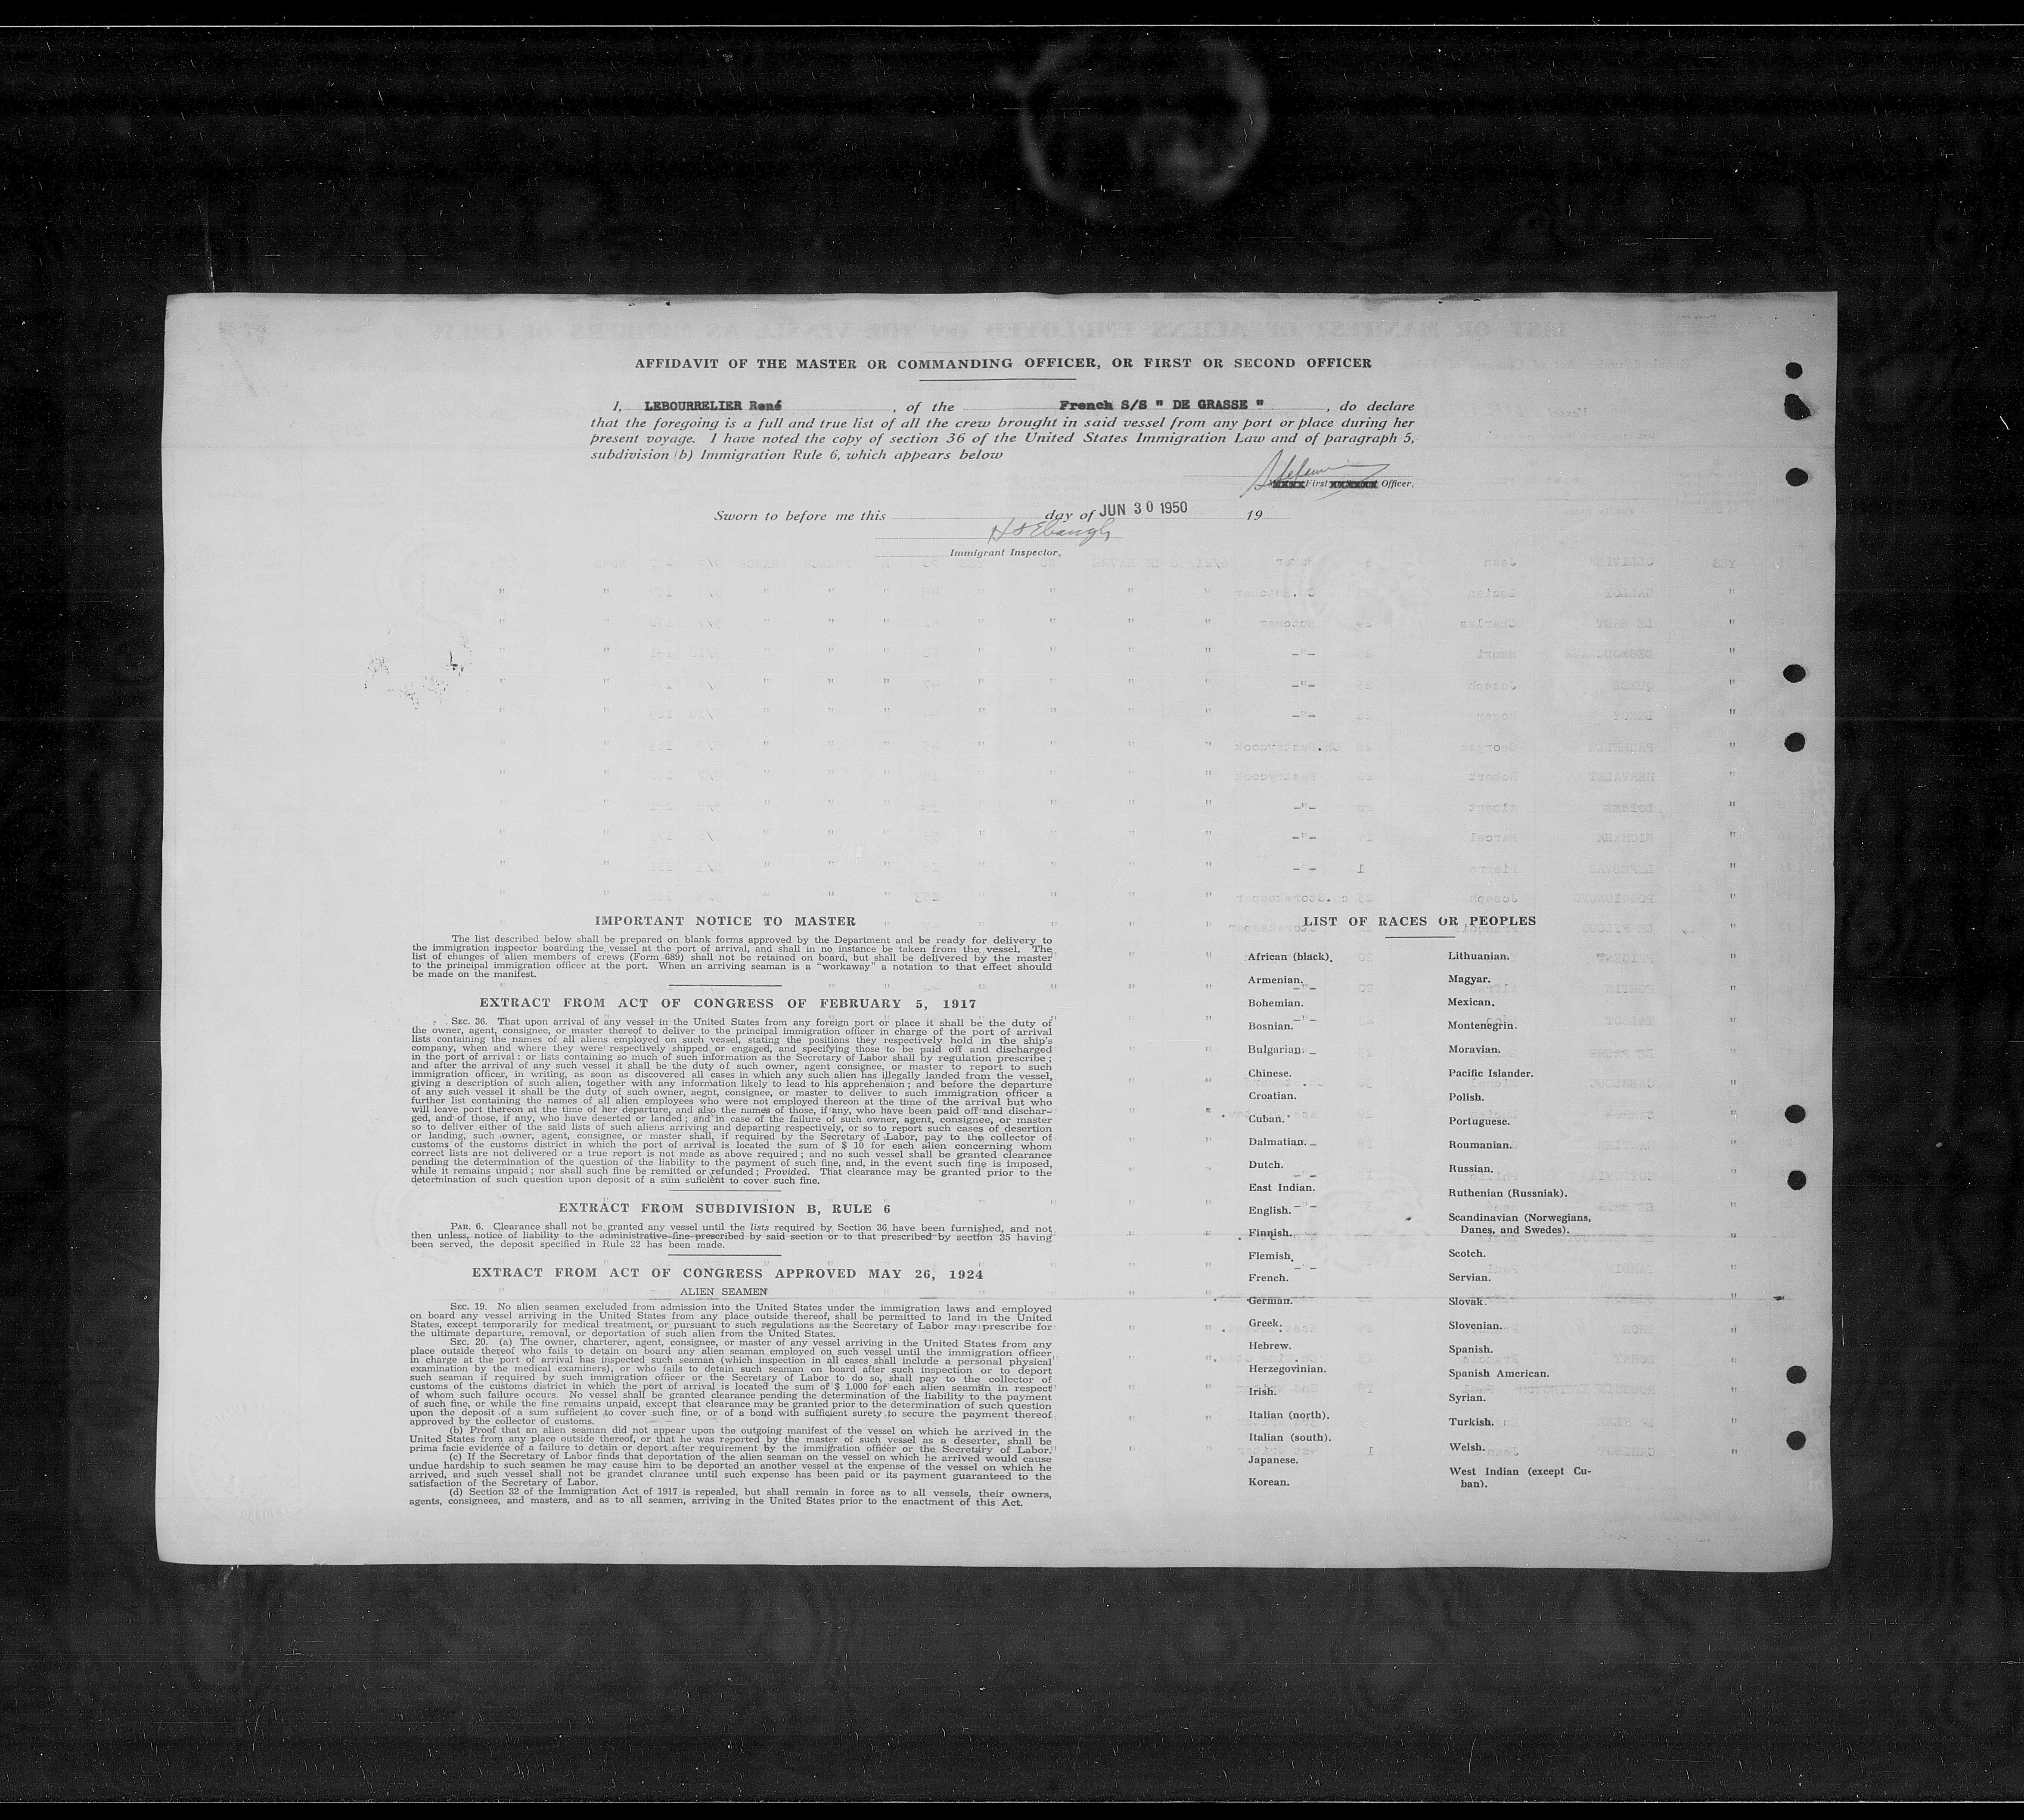 AFFIDAVIT OF THE MASTER OR COMMANDING OFFICER, OR FIRST OR SECOND OFFICER
I, LEBOURRELIER René , of the French S/S " DE GRASSE " , do declare
that the foregoing is a full and true list of all the crew brought in said vessel from any port or place during her
present voyage. I have noted the copy of section 36 of the United States Immigration Law and of paragraph 5,
subdivision (b) Immigration Rule 6, which appears below
First Officer.
Sworn to before me this day of JUN 30 1950 19
Immigrant Inspector,
IMPORTANT NOTICE TO MASTER
The list described below shall be prepared on blank forms approved by the Department and be ready for delivery to
the immigration inspector boarding the vessel at the port of arrival, and shall in no instance be taken from the vessel. The
list of changes of alien members of crews (Form 689) shall not be retained on board, but shall be delivered by the master
to the principal immigration officer at the port. When an arriving seaman is a “workaway” a notation to that effect should
be made on the manifest.
EXTRACT FROM ACT OF CONGRESS OF FEBRUARY 5, 1917
SEC. 36. That upon arrival of any vessel in the United States from any foreign port or place it shall be the duty of
the owner, agent, consignee, or master thereof to deliver to the principal immigration officer in charge of the port of arrival
lists containing the names of all aliens employed on such vessel, stating the positions they respectively hold in the ship's
company, when and where they were respectively shipped or engaged, and specifying those to be paid off and discharged
in the port of arrival : or lists containing so much of such information as the Secretary of Labor shall by regulation prescribe ;
and after the arrival of any such vessel it shall be the duty of such owner, agent consignee, or master to report to such
immigration officer, in writing, as soon as discovered all cases in which any such alien has illegally landed from the vessel,
giving a description of such alien, together with any information likely to lead to his apprehension ; and before the departure
of any such vessel it shall be the duty of such owner, aegnt, consignee, or master to deliver to such immigration officer a
further list containing the names of all alien employees who were not employed thereon at the time of the arrival but who
will leave port thereon at the time of her departure, and also the names of those, if any, who have been paid off and dischar-
ged, and of those, if any, who have deserted or landed ; and in case of the failure of such owner, agent, consignee, or master
so to deliver either of the said lists of such aliens arriving and departing respectively, or so to report such cases of desertion
or landing, such owner, agent, consignee, or master shall, if required by the Secretary of Labor, pay to the collector of
customs of the customs district in which the port of arrival is located the sum of $ 10 for each alien concerning whom
correct lists are not delivered or a true report is not made as above required ; and no such vessel shall be granted clearance
pending the determination of the question of the liability to the payment of such fine, and, in the event such fine is imposed,
while it remains unpaid ; nor shall such fine be remitted or refunded ; Provided. That clearance may be granted prior to the
determination of such question upon deposit of a sum suficient to cover such fine.
EXTRACT FROM SUBDIVISION B, RULE 6
PAR. 6. Clearance shall not be granted any vessel until the lists required by Section 36 have been furnished, and not
then unless, notice of liability to the administrative fine prescribed by said section or to that prescribed by section 35 having
been served, the deposit specified in Rule 22 has been made.
EXTRACT FROM ACT OF CONGRESS APPROVED MAY 26, 1924
ALIEN SEAMEN
SEC. 19. No alien seamen excluded from admission into the United States under the immigration laws and employed
on board any vessel arriving in the United States from any place outside thereof, shall be permitted to land in the United
States, except temporarily for medical treatment, or pursuant to such regulations as the Secretary of Labor may prescribe for
the ultimate departure, removal, or deportation of such alien from the United States.
SEC. 20. (a) The owner, charterer, agent, consignee, or master of any vessel arriving in the United States from any
place outside thereof who fails to detain on board any alien seaman employed on such vessel until the immigration officer
in charge at the port of arrival has inspected such seaman (which inspection in all cases shall include a personal physical
examination by the medical examiners), or who fails to detain such seaman on board after such inspection or to deport
such seaman if required by such immigration officer or the Secretary of Labor to do so, shall pay to the collector of
customs of the customs district in which the port of arrival is located the sum of $ 1.000 for each alien seaman in respect
of whom such failure occurs. No vessel shall be granted clearance pending the determination of the liability to the payment
of such fine, or while the fine remains unpaid, except that clearance may be granted prior to the determination of such question
upon the deposit of a sum sufficient to cover such fine, or of a bond with sufficient surety to secure the payment thereof
approved by the collector of customs.
(b) Proof that an alien seaman did not appear upon the outgoing manifest of the vessel on which he arrived in the
United States from any place outside thereof, or that he was reported by the master of such vessel as a deserter, shall be
prima facie evidence of a failure to detain or deport after requirement by the immigration officer or the Secretary of Labor.
(c) If the Secretary of Labor finds that deportation of the alien seaman on the vessel on which he arrived would cause
undue hardship to such seamen he may cause him to be deported an another vessel at the expense of the vessel on which he
arrived, and such vessel shall not be grandet clarance until such expense has been paid or its payment guaranteed to the
satisfaction of the Secretary of Labor.
(d) Section 32 of the Immigration Act of 1917 is repealed, but shall remain in force as to all vessels, their owners,
agents, consignees, and masters, and as to all seamen, arriving in the United States prior to the enactment of this Act.
LIST OF RACES OR PEOPLES
African (black).
Armenian.
Bohemian.
Bosnian.
Bulgarian.
Chinese.
Croatian.
Cuban.
Dalmatian.
Dutch.
East Indian.
English.
Finnish.
Flemish.
French.
German.
Greek.
Hebrew.
Herzegovinian.
Irish.
Italian (north).
Italian (south).
Japanese.
Korean.
Lithuanian.
Magyar.
Mexican.
Montenegrin.
Moravian.
Pacific Islander.
Polish.
Portuguese.
Roumanian.
Russian.
Ruthenian (Russniak).
Scandinavian (Norwegians,
Danes, and Swedes).
Scotch.
Servian.
Slovak.
Slovenian.
Spanish.
Spanish American.
Syrian.
Turkish.
Welsh.
West Indian (except Cu-
ban).